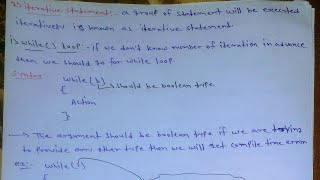 2) iterative statement :- a group of statement will be executed
iteratively is known as iterative statement.
i) while() loop :- if we don't know number of iteration in advance
then we should go for while loop.
Syntax
while(b)
should be boolean type
{
Action
}
The argument should be boolean type if we are trying
to provide any other type then we will get compile time error
ex:- while(1)
{